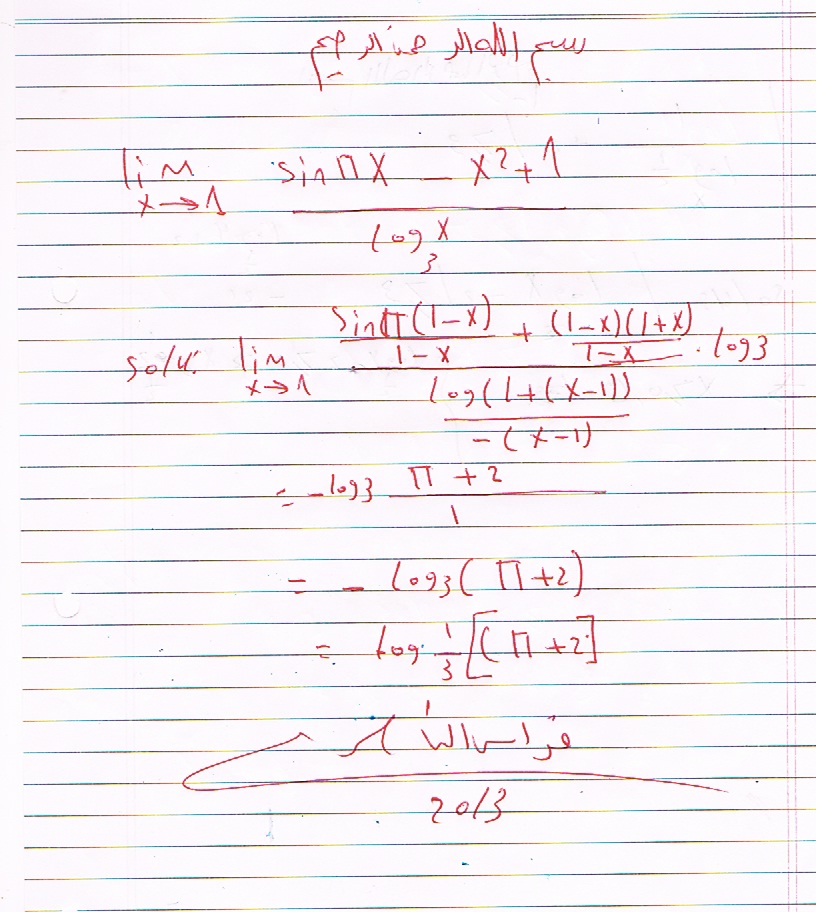 بسم الله الرحمن الرحيم
lim x→1 (sin Π x − x² + 1) / (log₃ x)
solu: lim x→1 (sin Π(1−x) / (1−x) + (1−x)(1+x) / (1−x)) / (log(1+(x−1)) / −(x−1)) · log 3
= −log 3 (Π + 2) / 1
= − log 3 (Π + 2)
= log 1/3 [(Π + 2]
2013